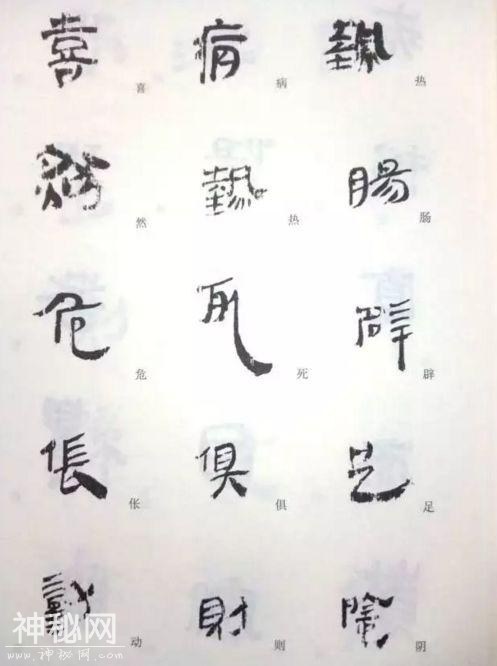 喜 病 熱
喜 病 热
然 熱 腸
然 热 肠
危 死 辟
危 死 辟
倀 俱 足
伥 俱 足
动 则 阴
神秘网
www.神秘网.com